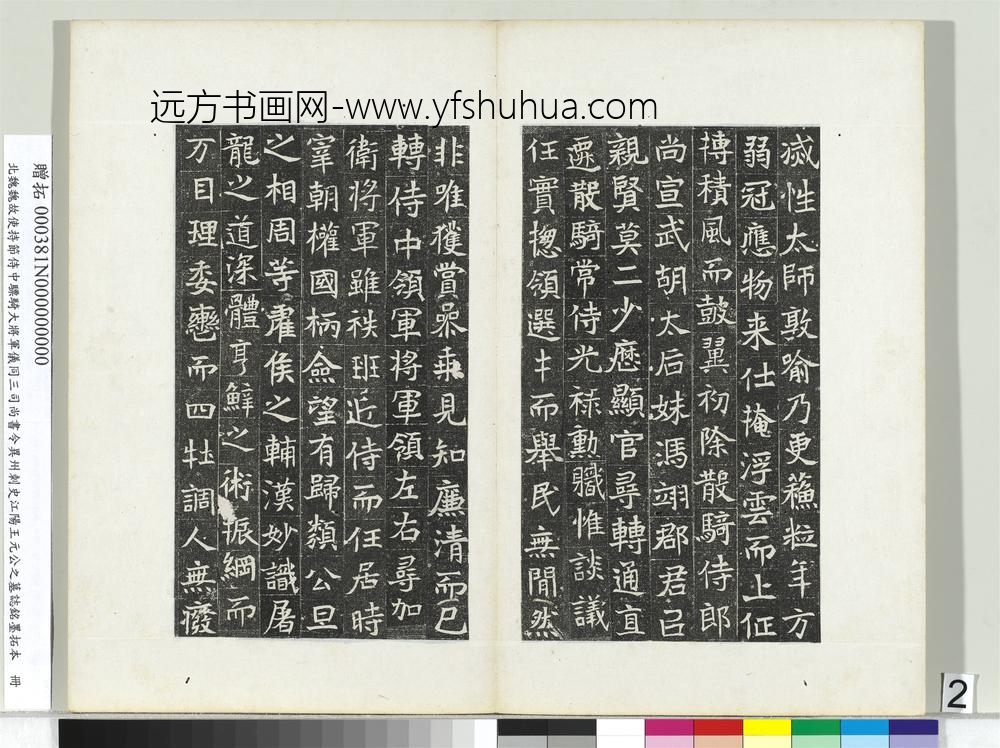 远方书画网-www.yfshuhua.com
滅性太師敦喻乃更蘓粒年方
弱冠應物来仕掩浮雲而上征
摶積風而皷翼初除散騎侍郎
尚宣武胡太后妹馮翊郡君㠯
親賢莫二少歷顯官尋轉通直
遷散騎常侍光祿勳職惟談議
任實揔領選才而舉民無閒然
非唯獲賞參乘見知廉清而已
轉侍中領軍将軍領左右尋加
衛将軍雖秩班近侍而任居時
宰朝權國柄僉望有歸類公旦
之相周等霍侯之輔漢妙識屠
龍之道深體亨鮮之術振綱而
万目理委轡而四牡調人無廢
贈拓 000381N000000000
北魏魏故使持節侍中驃騎大將軍儀同三司尚書令冀州刺史江陽王元公之墓誌銘墨拓本 冊
2